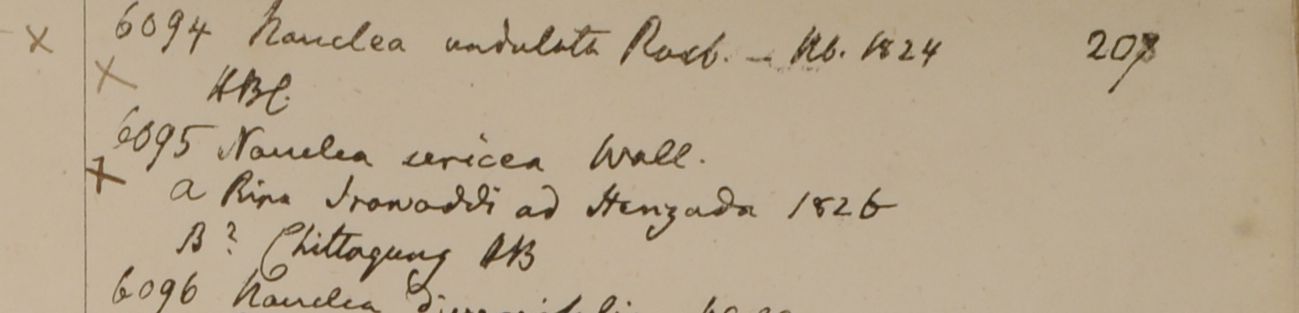 x 6094 Nauclea undulata Roxb. – Hb. 1824 207
x HBC.
6095 Nauclea sericea Wall.
x a Ripa Irawaddi ad Henzada 1826
B? Chittagung HB
6096 Nauclea diversifolia Wall